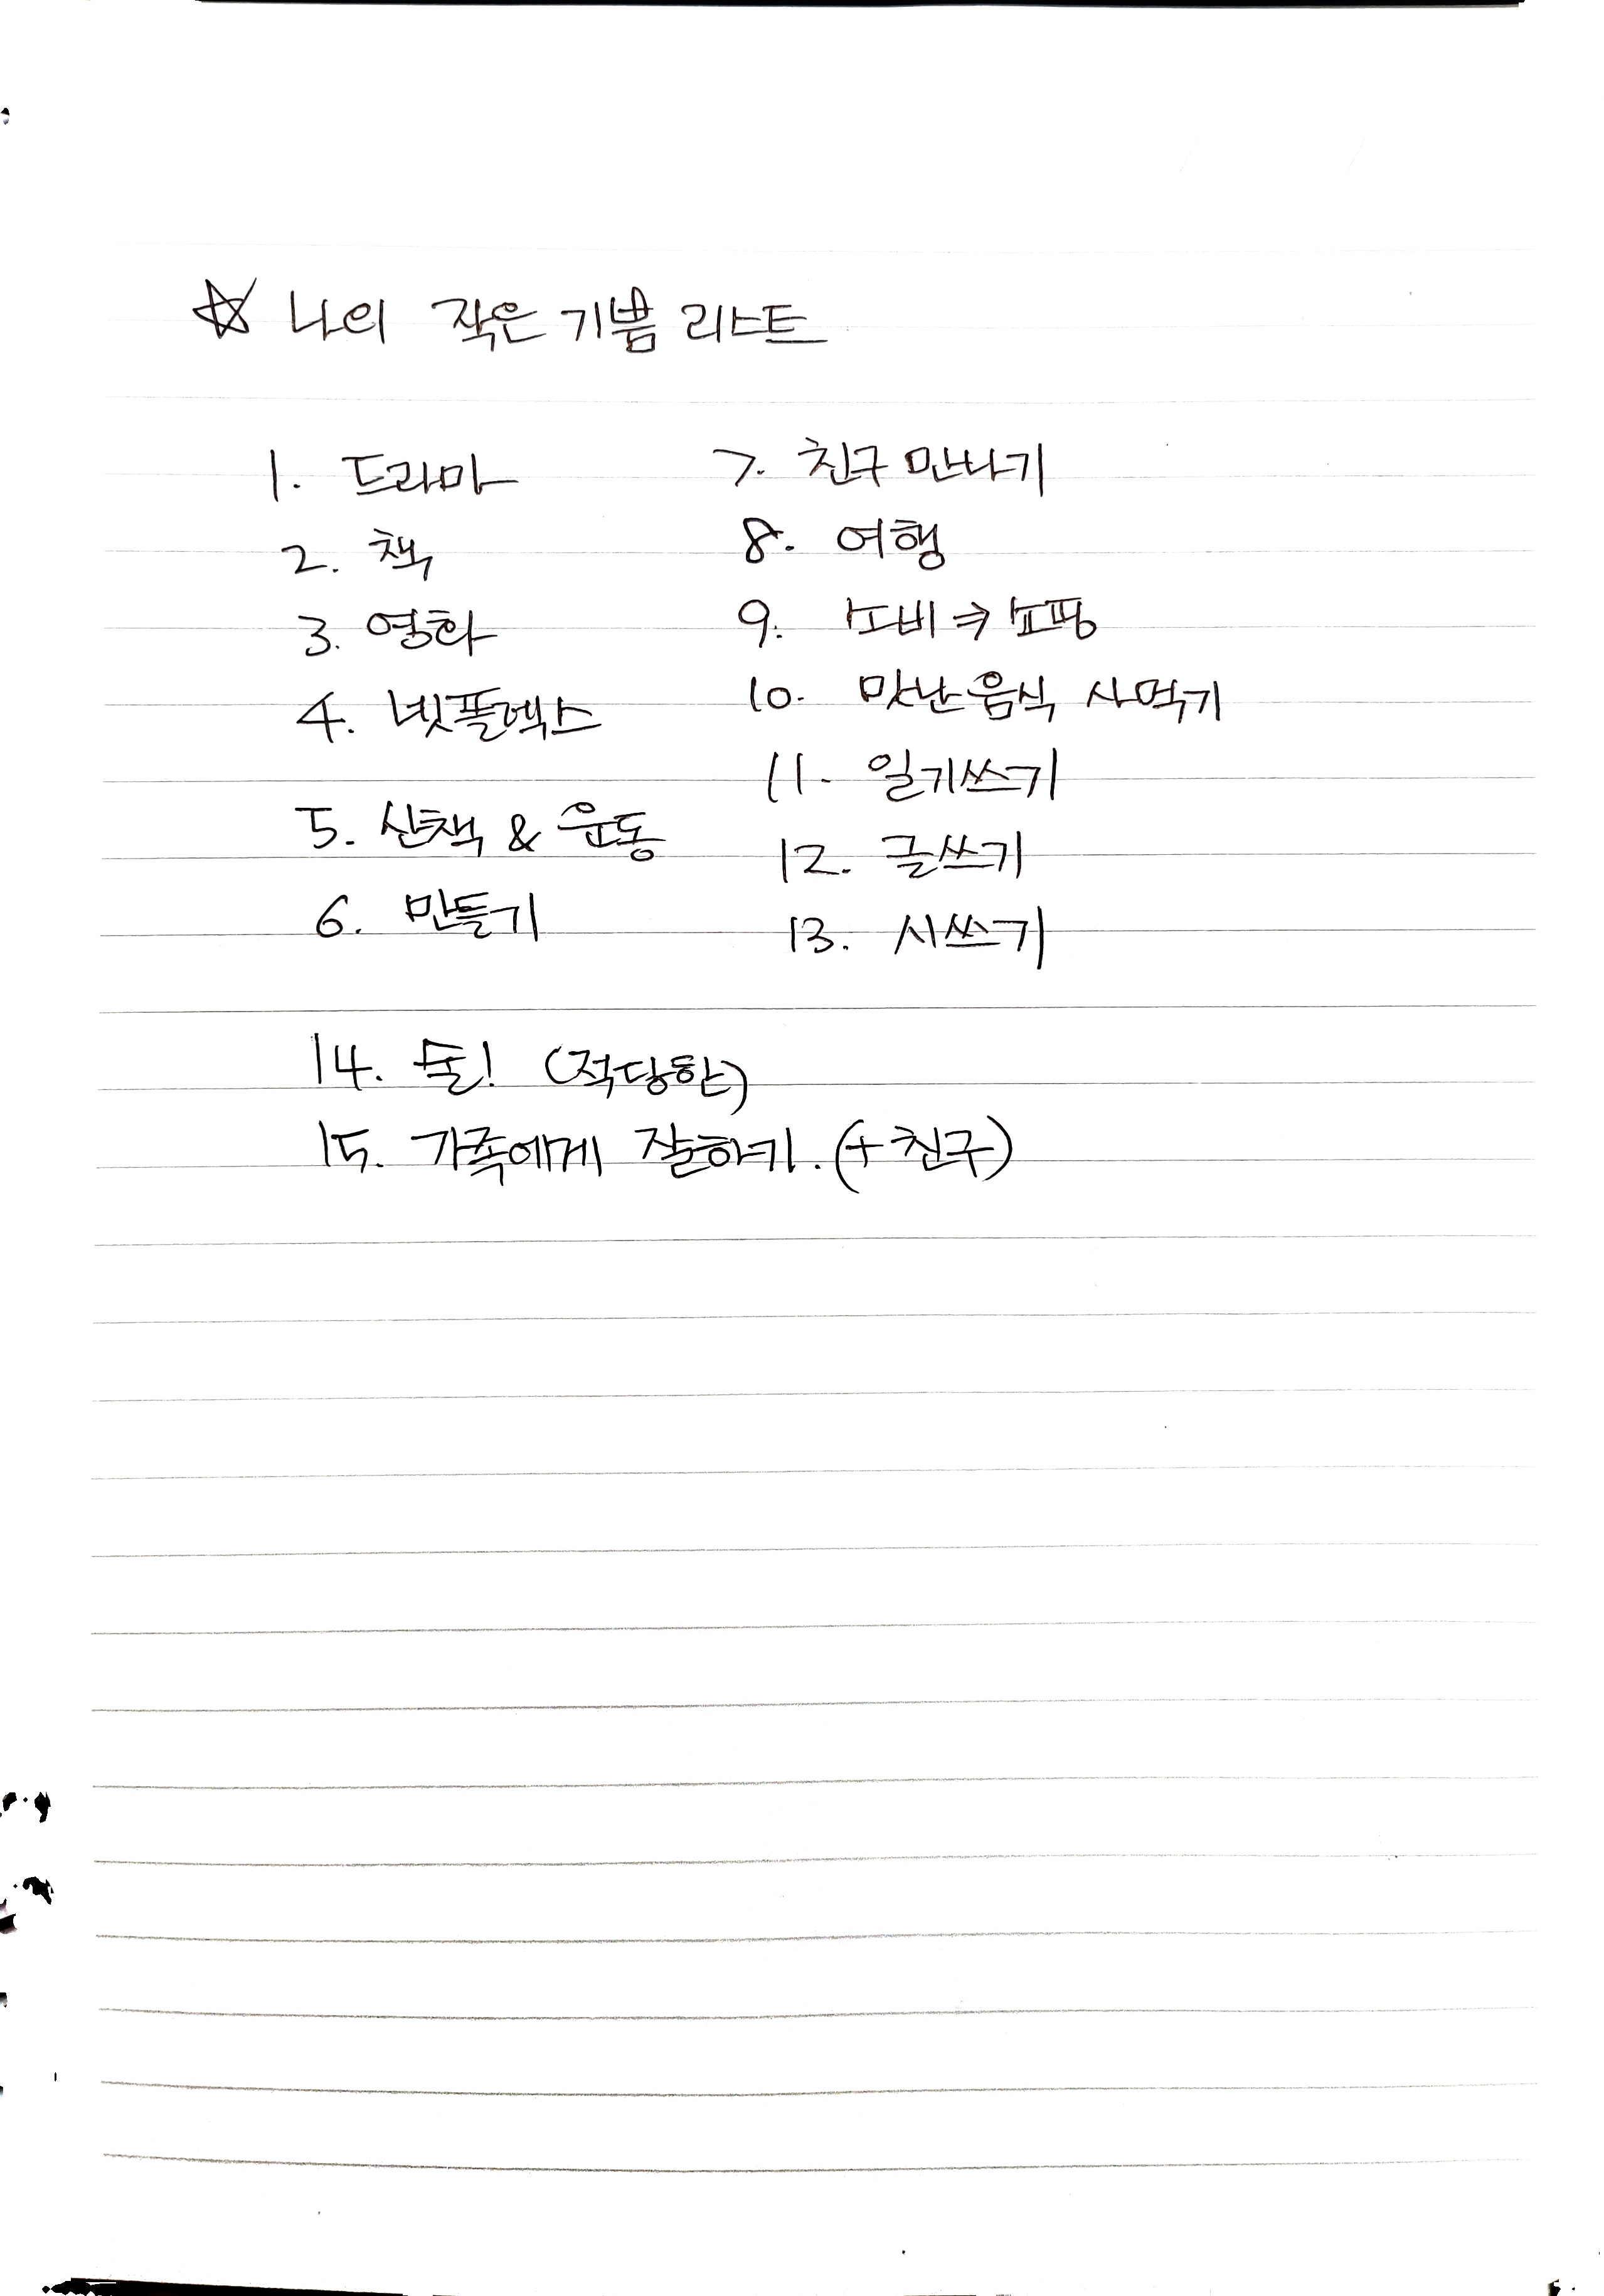 ☆ 나의 작은 기쁨 리스트
1. 드라마
2. 책
3. 영화
4. 넷플렉스
5. 산책 & 운동
6. 만들기
7. 친구 만나기
8. 여행
9. 소비 → 쇼핑
10. 맛난 음식 사먹기
11. 일기쓰기
12. 글쓰기
13. 시쓰기
14. 술! (적당한)
15. 가족에게 잘하기. (+ 친구)